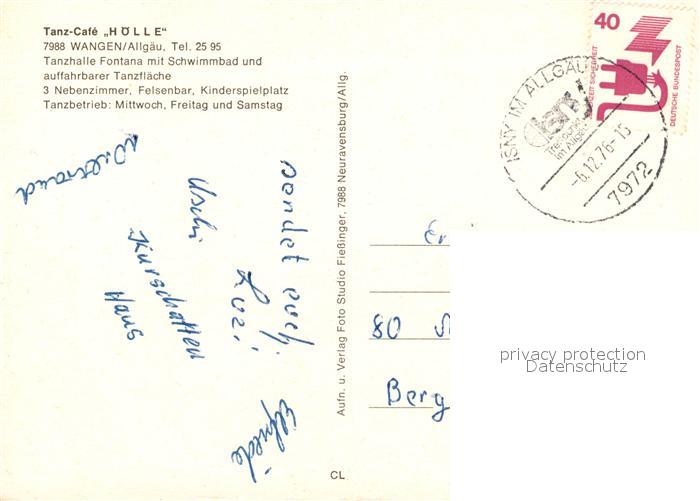 Tanz-Café „HÖLLE“
7988 WANGEN/Allgäu, Tel. 25 95
Tanzhalle Fontana mit Schwimmbad und
auffahrbarer Tanzfläche
3 Nebenzimmer, Felsenbar, Kinderspielplatz
Tanzbetrieb: Mittwoch, Freitag und Samstag
sendet euch
Luzi
Uschi
Kurschatten
Haus
Wiltraud
Elfriede
Aufn. u. Verlag Foto Studio Fießinger, 7988 Neuravensburg/Allg.
CL
40
DEUTSCHE BUNDESPOST
ISNY IM ALLGÄU
Treffpunkt
im Allgäu
-6.12.76-15
7972
80
Berg
privacy protection
Datenschutz